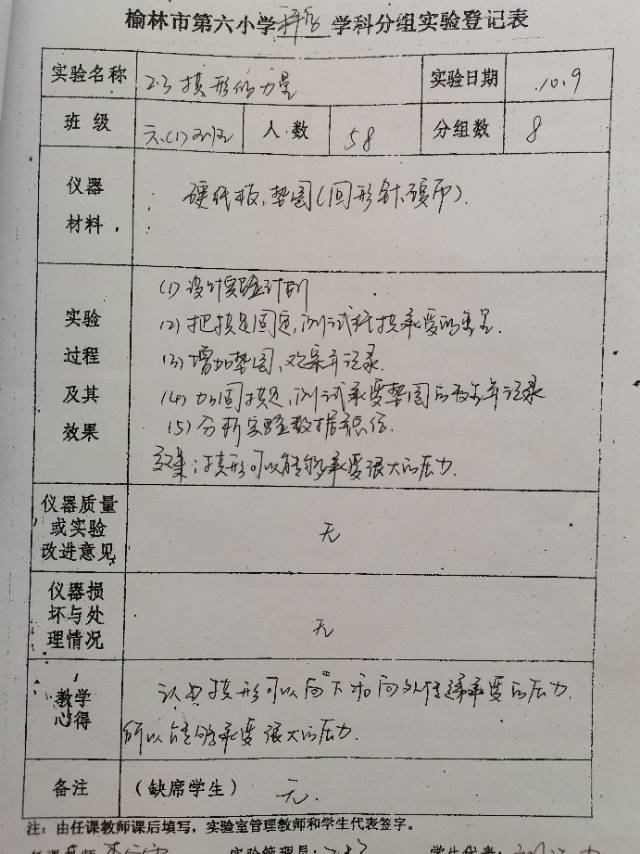 榆林市第六小学科学学科分组实验登记表
实验名称 2.3拱形的力量 实验日期 10.9
班级 六(1)班 人数 58 分组数 8
仪器材料 硬纸板、垫圈(回形针、硬币).
实验过程及其效果
(1)设计实验计划
(2)把拱足固定,测试纸拱承受的重量.
(3)增加垫圈,观察并记录.
(4)加固拱足,测试承受垫圈的 并记录
(5)分析实验数据
效果:拱形可以能够承受很大的压力.
仪器质量或实验改进意见 无
仪器损坏与处理情况 无
教学心得
认为拱形可以向下和向外传递承受的压力
所以能够承受很大的压力.
备注 (缺席学生) 无.
注:由任课教师课后填写,实验室管理教师和学生代表签字。
任课教师 实验管理员: 学生代表: